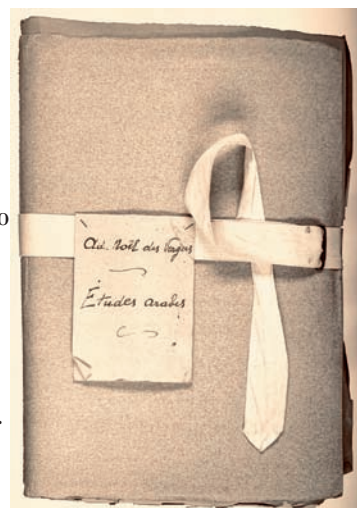 Ad. Noël des Vergers
Études arabes